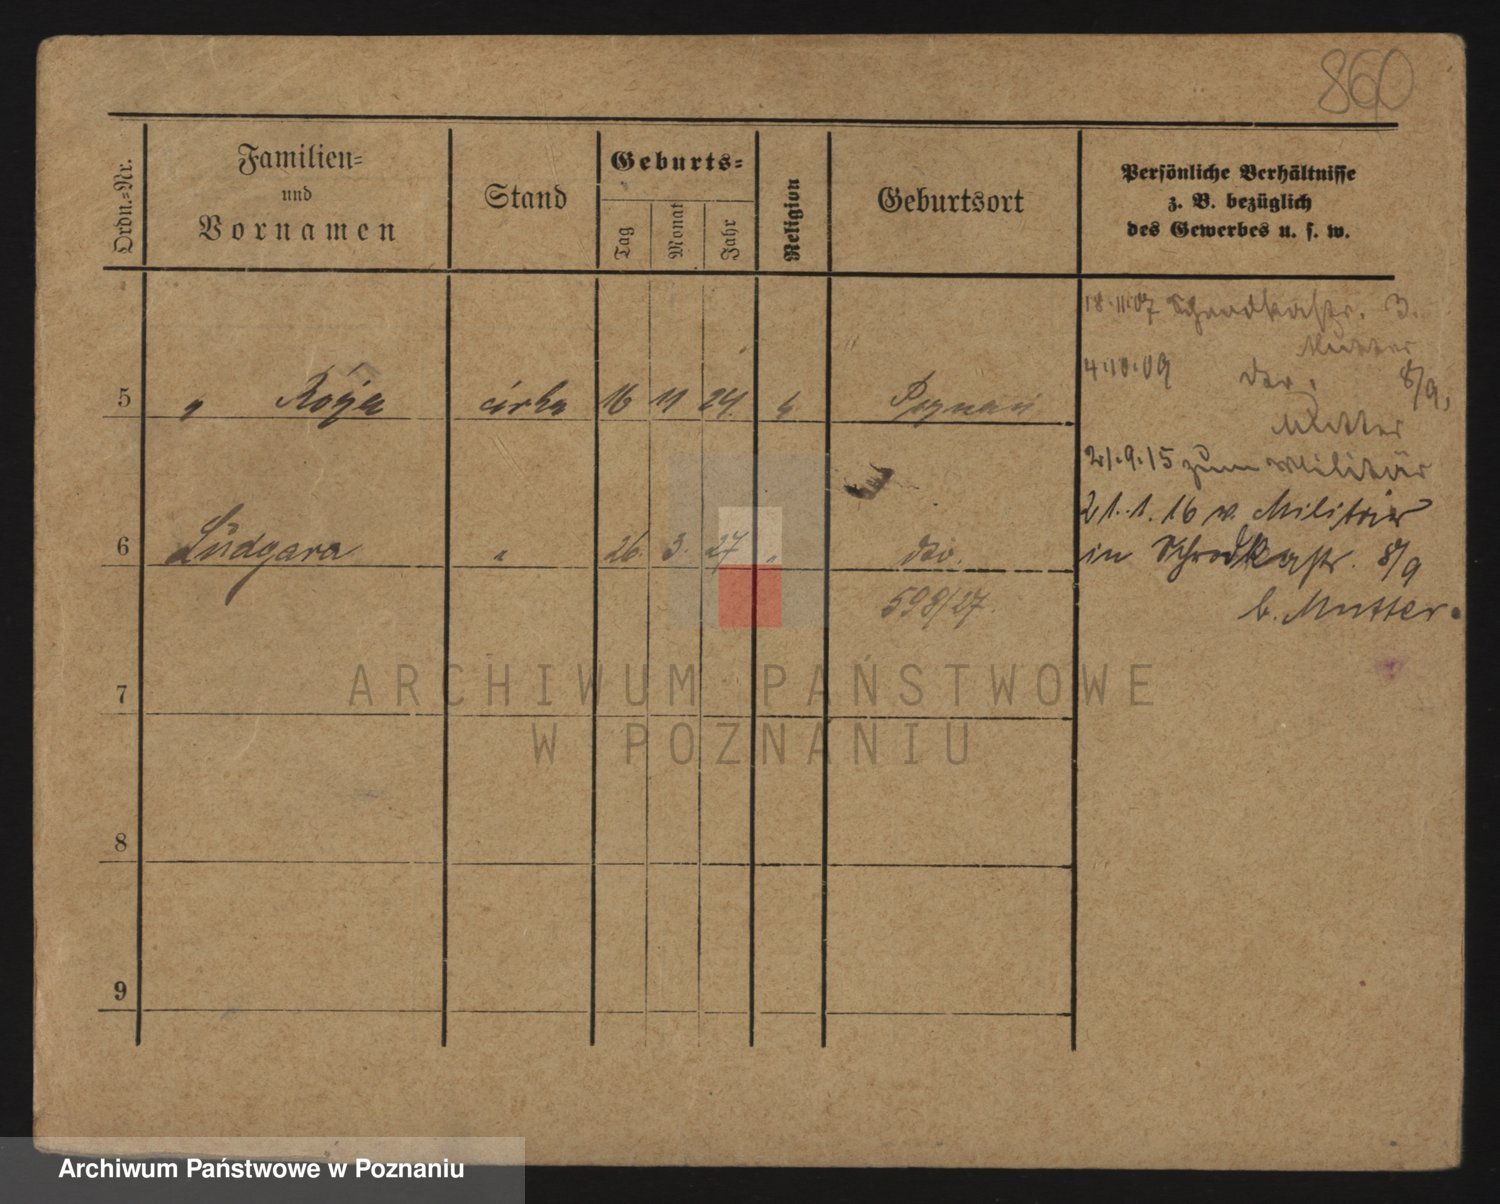 860
Ordn.-Nr.
Familien-
und
Vornamen
Stand
Geburts-
Tag
Monat
Jahr
Religion
Geburtsort
Persönliche Verhältnisse
z. B. bezüglich
des Gewerbes u. s. w.
18.11.07 Schrodkastr. 3.
Mutter
4.10.09 8/9,
Mutter
5 " Róża córka 16 11 24. Poznań
21.9.15 zum Militär
21.1.16 v. Militär
6 Ludgara " 26. 3. 27 " dto.
in Schrodkastr. 8/9
598/27.
b. Mutter.
7
8
9
ARCHIWUM PAŃSTWOWE
W POZNANIU
Archiwum Państwowe w Poznaniu